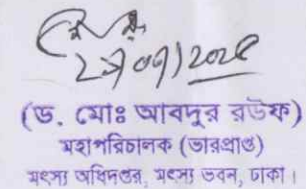 ২৯/০৭/২০২৫
(ড. মোঃ আবদুর রউফ)
মহাপরিচালক (ভারপ্রাপ্ত)
মৎস্য অধিদপ্তর, মৎস্য ভবন, ঢাকা।